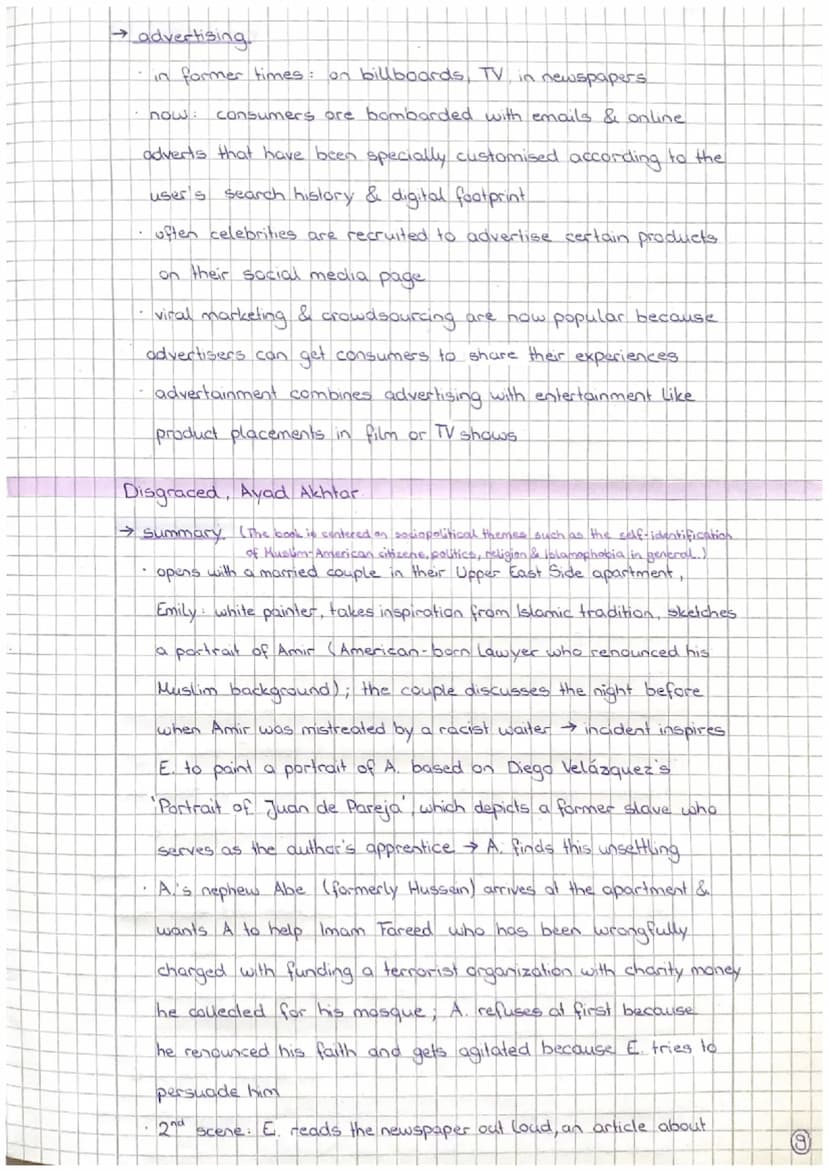 → advertising.
· in former times: on billboards, TV, in newspapers
· now: consumers are bombarded with emails & online
adverts that have been specially customised according to the
user's search history & digital footprint
· often celebrities are recruited to advertise certain products
on their social media page
· viral marketing & crowdsourcing are now popular because
advertisers can get consumers to share their experiences
· advertainment combines advertising with entertainment like
product placements in film or TV shows
Disgraced, Ayad Akhtar
→ summary. (The book is centered on sociopolitical themes such as the self-identification
of Muslim-American citizens, politics, religion & Islamophobia in general.)
· opens with a married couple in their Upper East Side apartment,
Emily: white painter, takes inspiration from Islamic tradition, sketches
a portrait of Amir (American-born lawyer who renounced his
Muslim background); the couple discusses the night before
when Amir was mistreated by a racist waiter → incident inspires
E. to paint a portrait of A. based on Diego Velázquez's
'Portrait of Juan de Pareja', which depicts a former slave who
serves as the author's apprentice → A. finds this unsettling
· A.'s nephew Abe (formerly Hussein) arrives at the apartment &
wants A to help Imam Fareed who has been wrongfully
charged with funding a terrorist organization with charity money
he collected for his mosque; A. refuses at first because
he renounced his faith and gets agitated because E. tries to
persuade him
· 2nd scene: E. reads the newspaper out loud, an article about
9